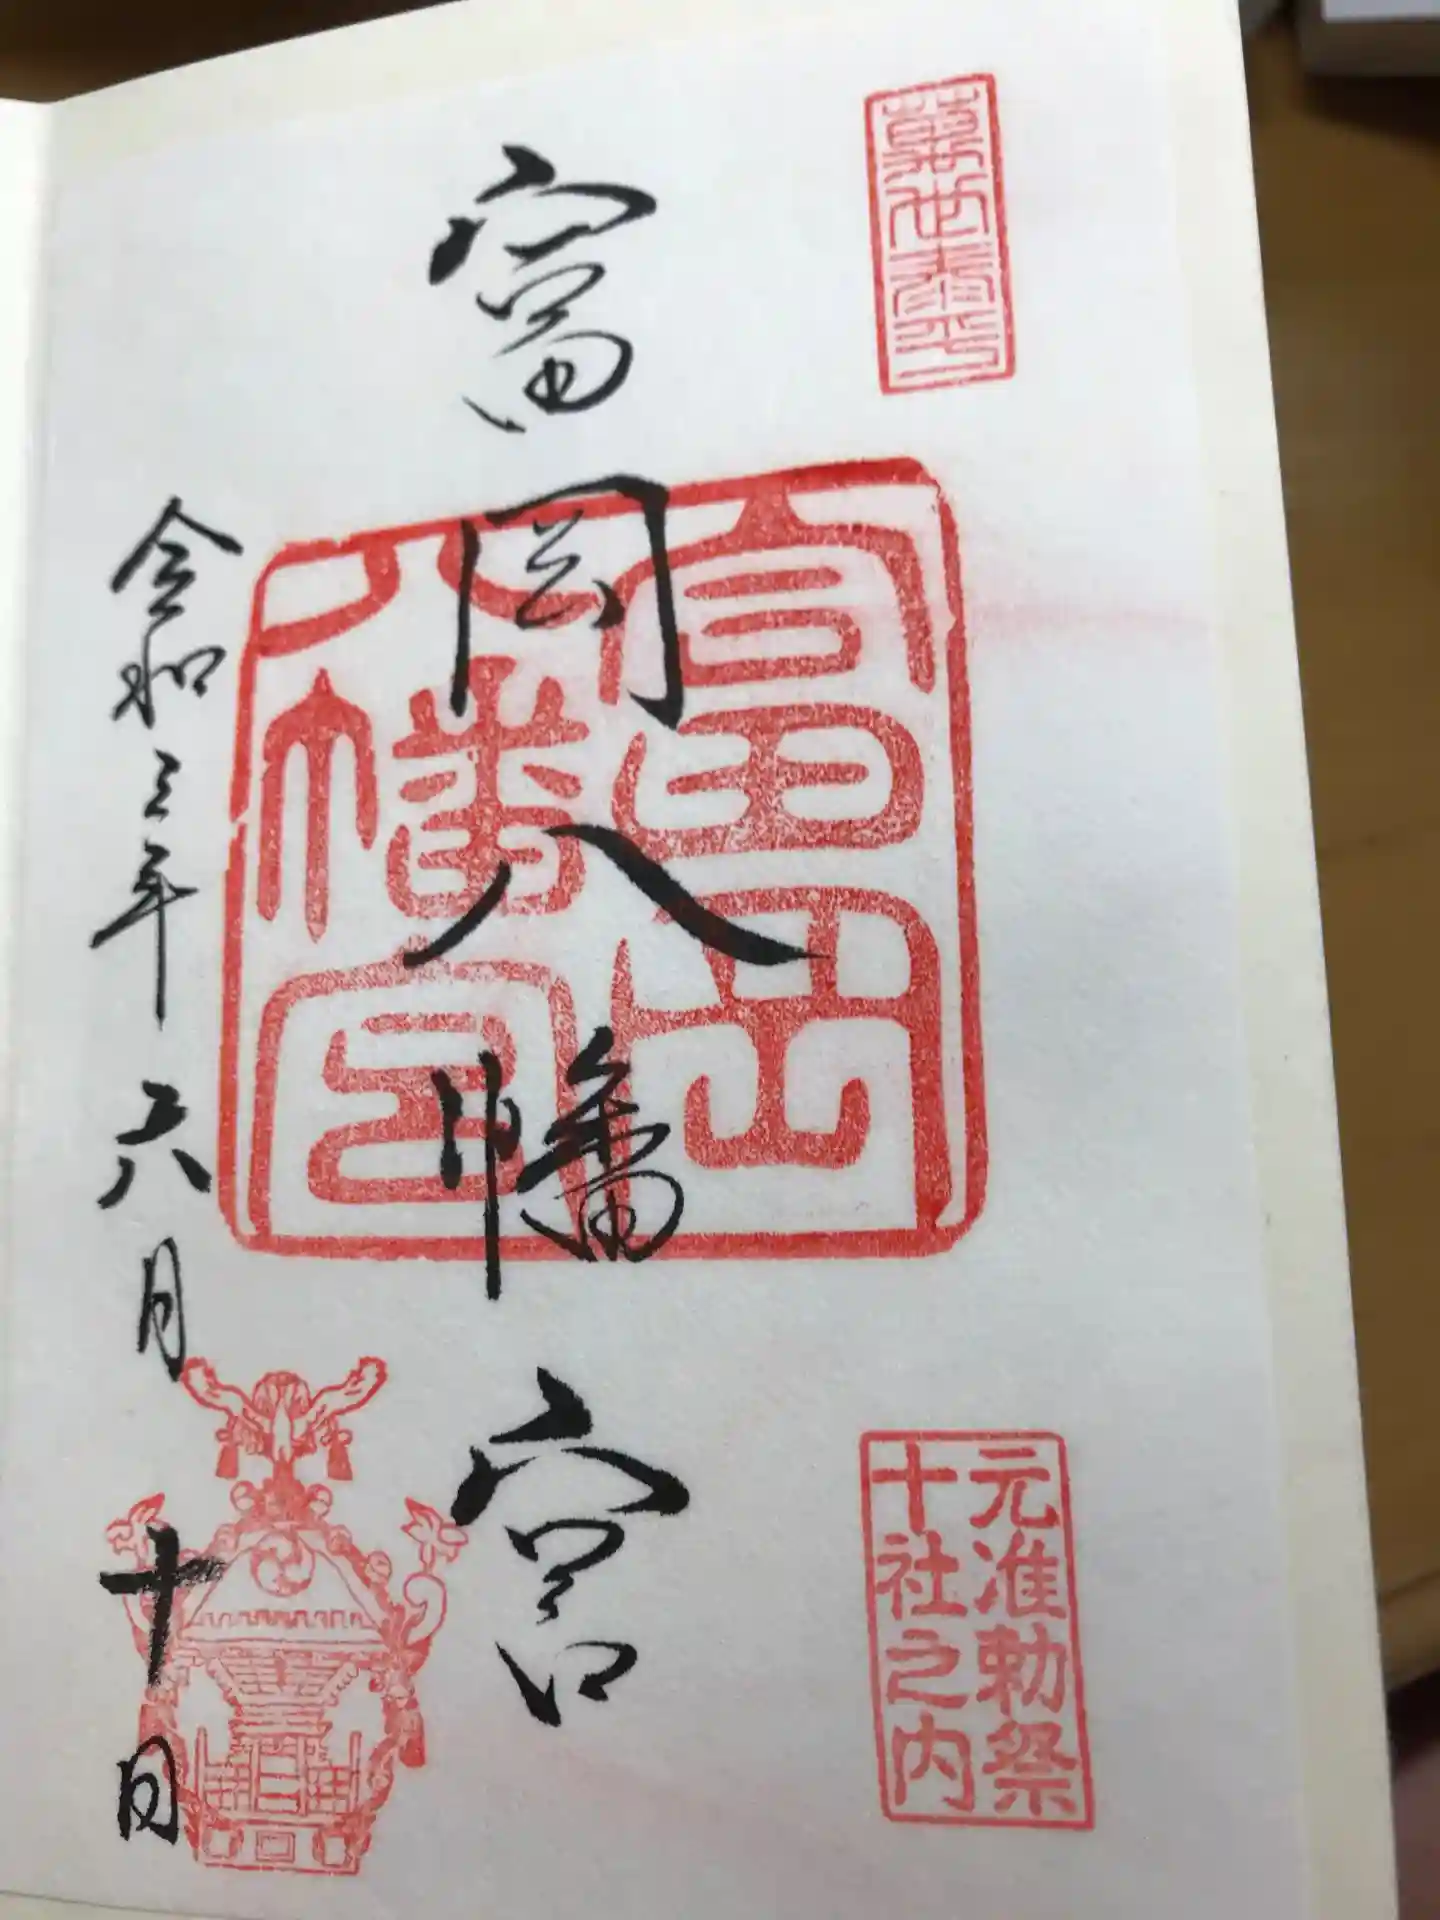 萬世泰平
富岡八幡宮
富岡
八幡宮
元准勅祭
十社之内
令和三年六月十日